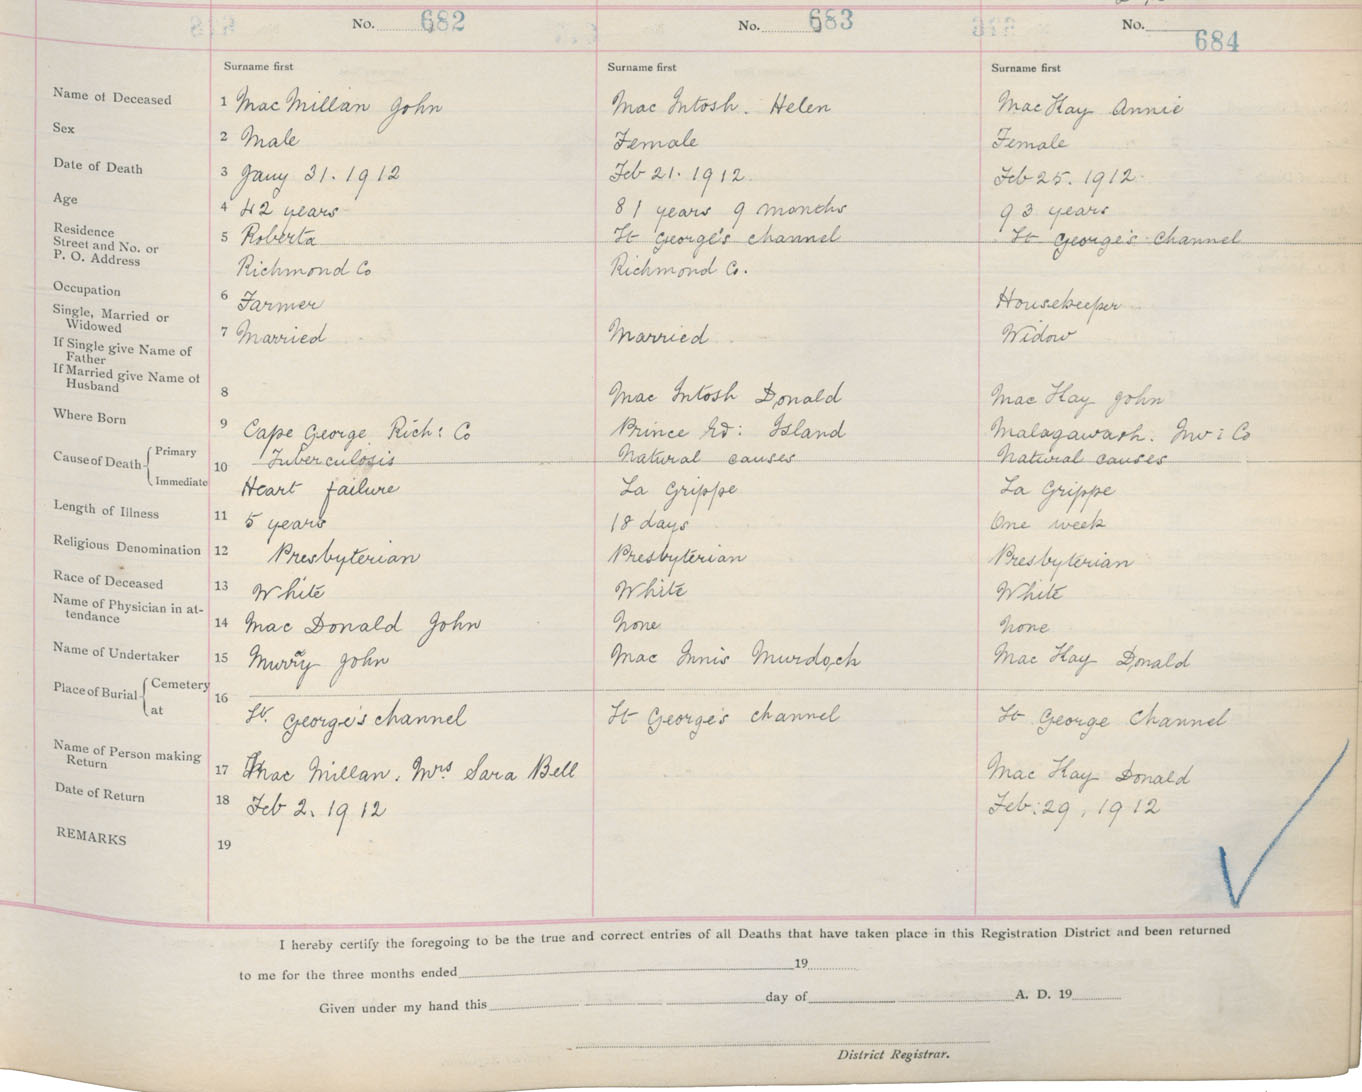 No. 682 No. 683 No. 684
Surname first Surname first Surname first
Name of Deceased 1 Mac Millan John Mac Intosh. Helen Mac Kay Annie
Sex 2 Male Female Female
Date of Death 3 Jany 31. 1912 Feb 21. 1912 Feb 25. 1912
Age 4 42 years 81 years 9 months 93 years
Residence
Street and No. or 5 Roberta St George's channel St George's channel
P. O. Address Richmond Co Richmond Co.
Occupation 6 Farmer Housekeeper
Single, Married or
Widowed 7 Married Married Widow
If Single give Name of
Father
If Married give Name of
Husband 8 Mac Intosh Donald Mac Kay John
Where Born 9 Cape George Rich: Co Prince Ed: Island Malagawash. Inv: Co
Cause of Death Primary 10 Tuberculosis Natural causes Natural causes
Immediate Heart failure La Grippe La Grippe
Length of Illness 11 5 years 18 days One week
Religious Denomination 12 Presbyterian Presbyterian Presbyterian
Race of Deceased 13 White White White
Name of Physician in at-
tendance 14 Mac Donald John None None
Name of Undertaker 15 Murry John Mac Innis Murdoch Mac Kay Donald
Place of Burial Cemetery 16
at St. George's channel St George's channel St George Channel
Name of Person making
Return 17 Mac Millan. Mrs Sara Bell Mac Kay Donald
Date of Return 18 Feb 2. 1912 Feb: 29, 1912
REMARKS 19
I hereby certify the foregoing to be the true and correct entries of all Deaths that have taken place in this Registration District and been returned
to me for the three months ended 19
Given under my hand this day of A. D. 19
District Registrar.